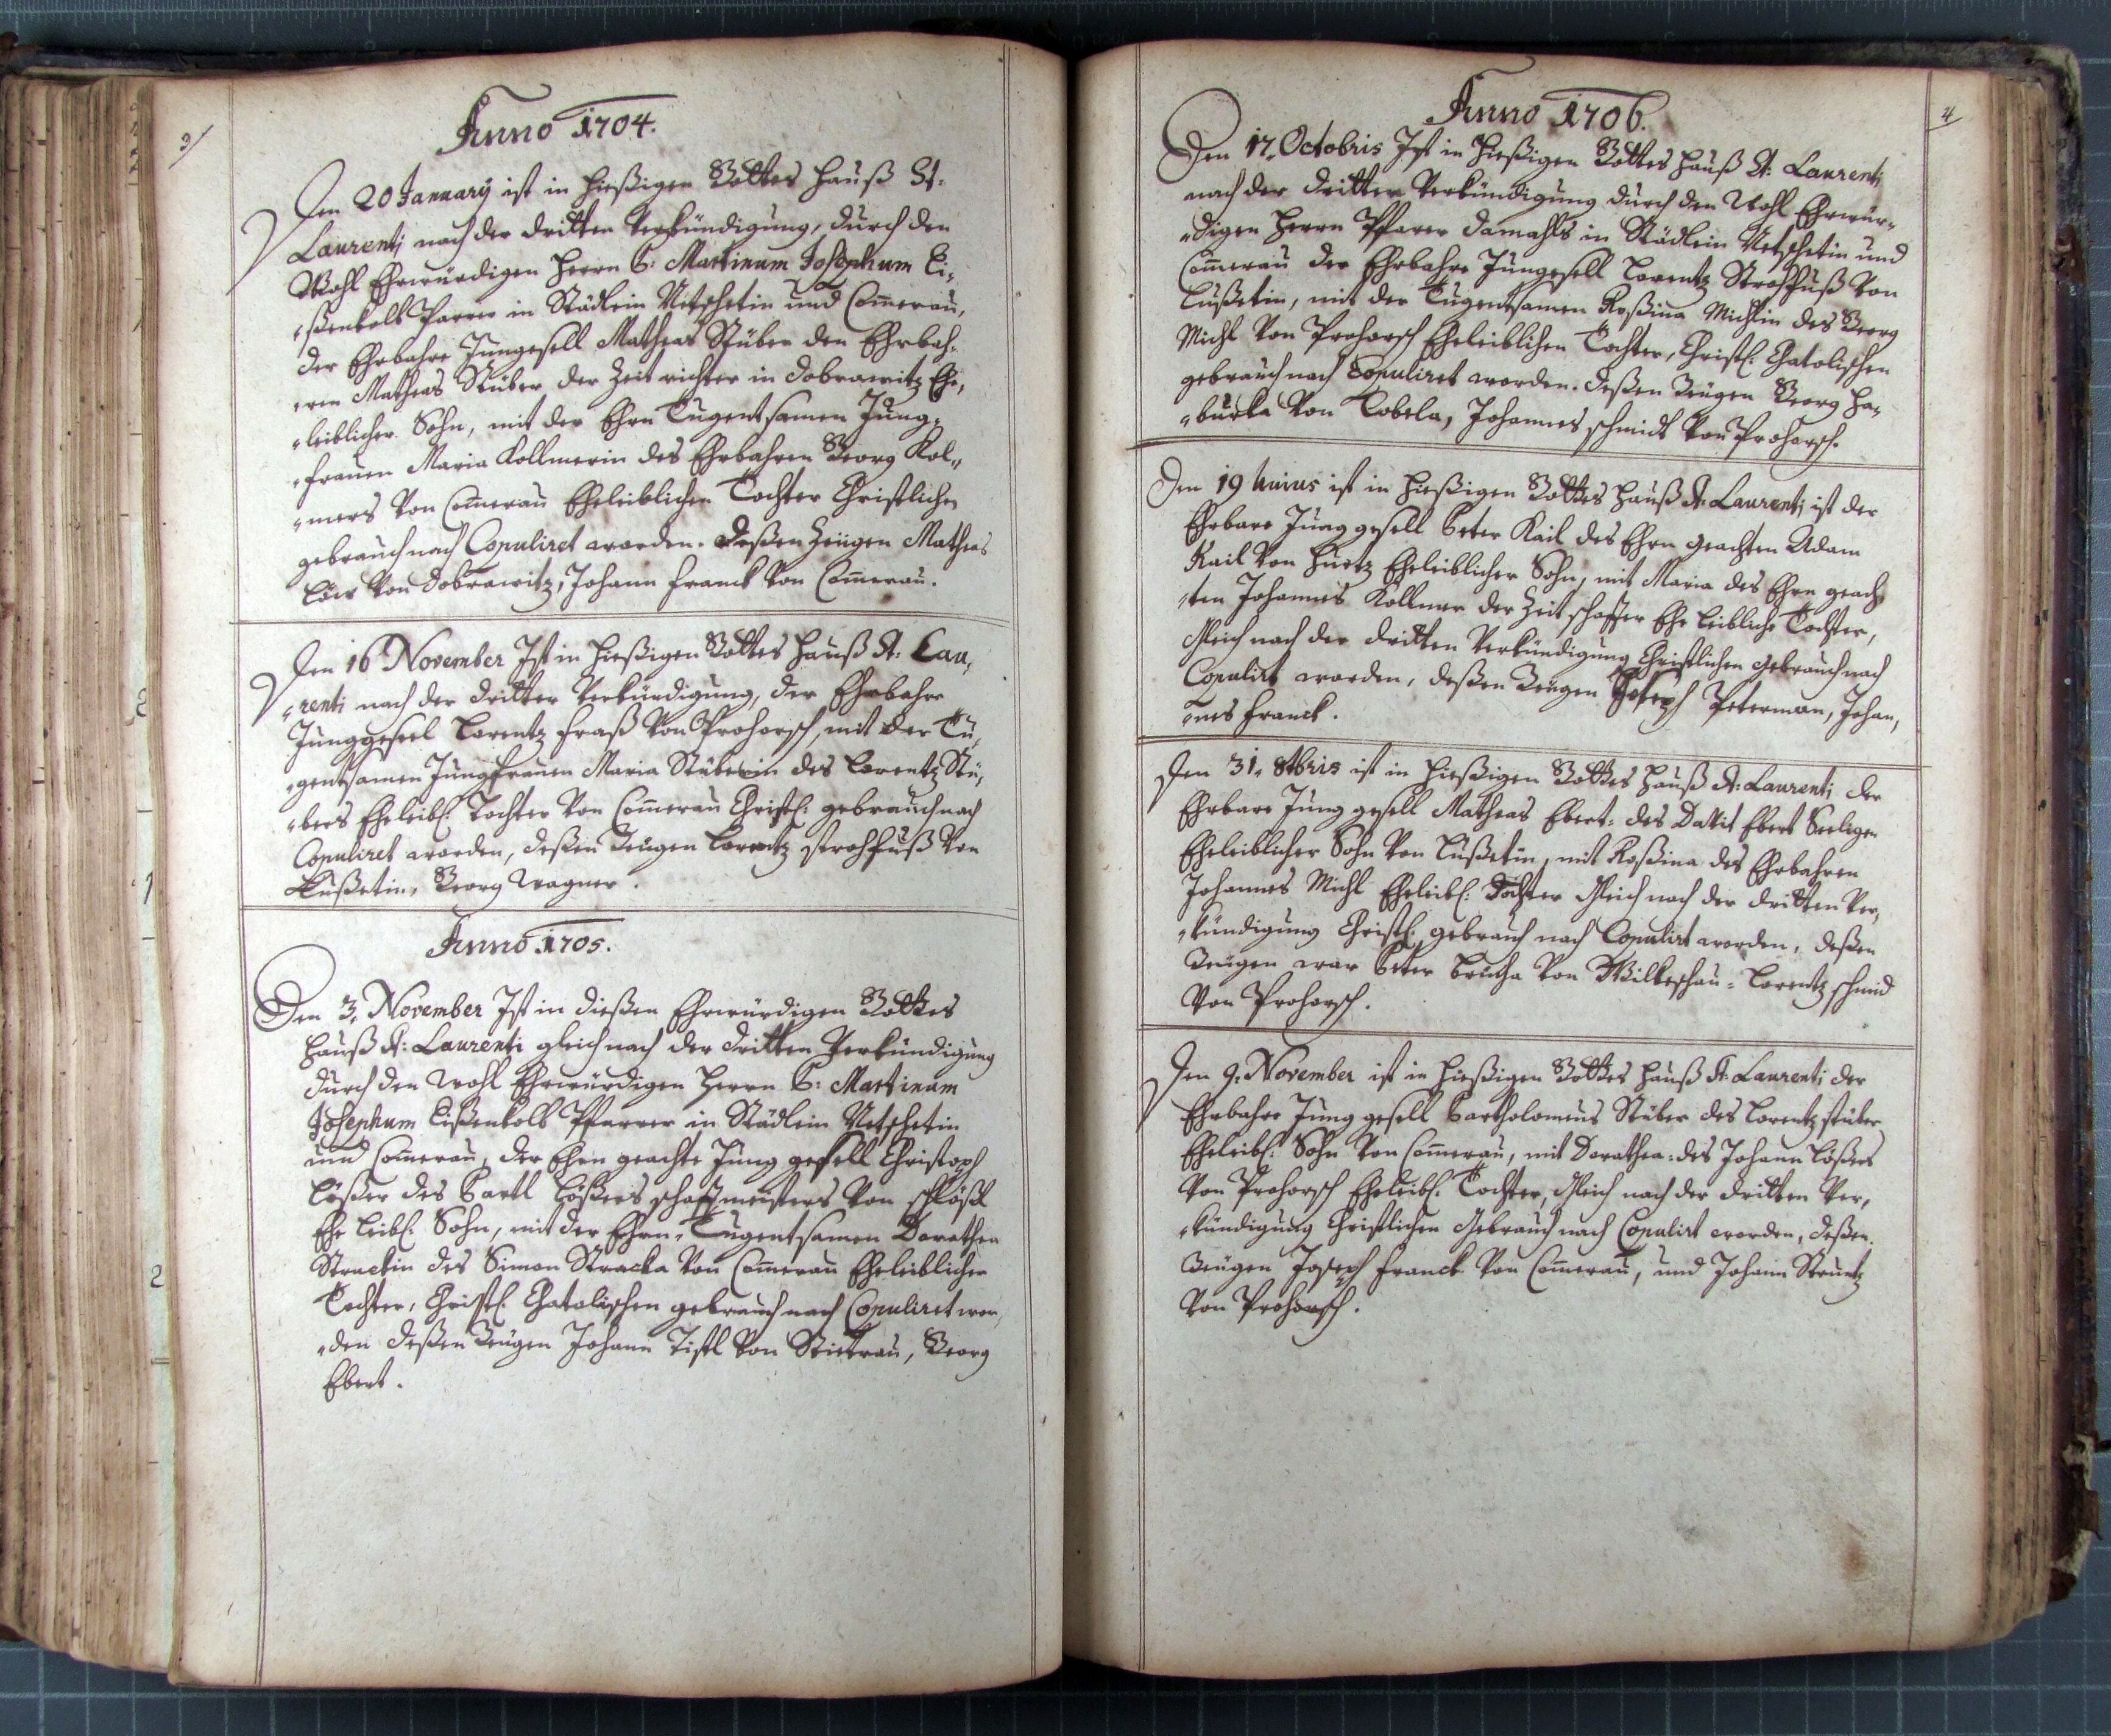 3
Anno 1704.
Den 20 January ist in hießigen Gottes Hauß St:
Laurentj nach der dritten Verkündigung, durch den
Wohl Ehrwürdigen Herrn P: Martinum Josephum Ei„
„ßenkolb Pfarrer in Städlein Netschetin und Com̄erau,
der Ehrbahre Jungesell Matheas Stüber den Ehrbah„
„ren Matheas Stüber der Zeit richter in Dobrawitz Ehe„
„leiblicher Sohn, mit der Ehrn Tugentsamen Jung„
„frauen Maria Kollmerin des Ehrbahren Georg Kol„
„mers Von Com̄erau Eheleiblichen Tochter Christlichen
gebrauch nach Copuliret worden. deßen Zeügen Matheas
Löw Von Dobrawitz, Johann Franck Von Com̄erau.
Den 16 November Ist in hießigen Gottes Hauß St: Lau„
„renti nach der dritten Verkündigung, der Ehrbahre
Junggesel Lorentz Fraß Von Prohorsch, mit der Tu„
„gentsamen Jungfrauen Maria Stüberin des Lorentz Stü„
„bers Eheleibl: Tochter Von Com̄erau Christl: gebrauch nach
Copuliret worden, deßen Zeügen Lorentz Strohfuß Von
Lußetin, Georg Wagner.
Anno 1705.
Den 3. November Ist in dießen Ehrwürdigen Gottes
Hauß St: Laurenti gleich nach der dritten Verkündigung
durch den Wohl Ehrwürdigen Herrn P: Martinum
Josephum Eißenkolb Pfarrer in Städlein Netschetin
und Com̄erau, der Ehrn geachte Jung gesell Christoph
Lößer des Bartl Lößers schaffmeisters Von schlößl
Ehe leibl: Sohn, mit der Ehrn„ Tugentsamen Dorathea
Strackin des Simon Stracka Von Com̄erau Eheleiblichen
Tochter, Christl: Chatolischen gebrauch nach Copuliret wor„
„den deßen Zeügen Johann Tistl Von Stiettrau, Georg
Ebert.
4
Anno 1706.
Den 17. Octobris Ist in hießigen Gottes Hauß St: Laurenti
nach der dritten Verkündigung durch den Wohl Ehrwür„
„digen Herrn Pfarer damahls in Städlein Netschetin und
Com̄erau der Ehrbahre Jungesell Lorentz Strohfuß Von
Lußetin, mit der Tugentsamen Roßina Michlin des Georg
Michl Von Prohorsch Eheleiblichen Tochter, Christl: Chatolischen
gebrauch nach Copuliret worden. deßen Zeügen Georg Ha„
„burka Von Kobela, Johannes schmidt Von Prohorsch.
Den 19 huius ist in hießigen Gottes Hauß St: Laurentj ist der
Ehrbare Jung gesell Peter Kail des Ehrn geachten Adam
Kail Von Hurtz Eheleiblicher Sohn, mit Maria des Ehrn geach„
„ten Johannes Kollmer der Zeit schaffer Ehe leibliche Tochter,
Gleich nach der dritten Verkündigung Christlichen Gebrauch nach
Copulirt worden, deßen Zeügen Joseph Peterman, Johan„
„nes Franck.
Den 31. 8bris ist in hießigen Gottes Hauß St: Laurenti der
Ehrbare Jung gesell Matheas Ebert: des Davit Ebert Seeligen
Eheleiblicher Sohn Von Lußetin, mit Roßina des Ehrbahren
Johannes Michl Eheleibl: Dochter Gleich nach der dritten Ver„
„kündigung Christl: gebrauch nach Copulirt worden, deßen
Zeügen war Peter Brucha Von Wilkeschau: Lorentz schmid
Von Prohorsch.
Den 9. November ist in hießigen Gottes Hauß St: Laurenti der
Ehrbahre Jung gesell Bartholomeus Stüber des Lorentz stüber
Eheleibl: Sohn Von Com̄erau, mit Dorathea: des Johann Lößers
Von Prohorsch Eheleibl: Tochter, Gleich nach der dritten Ver„
„kündigung Christlichen Gebrauch nach Copulirt worden, deßen
Zeügen Joseph Franck Von Com̄erau, und Johann Struntz
Von Prohorsch.